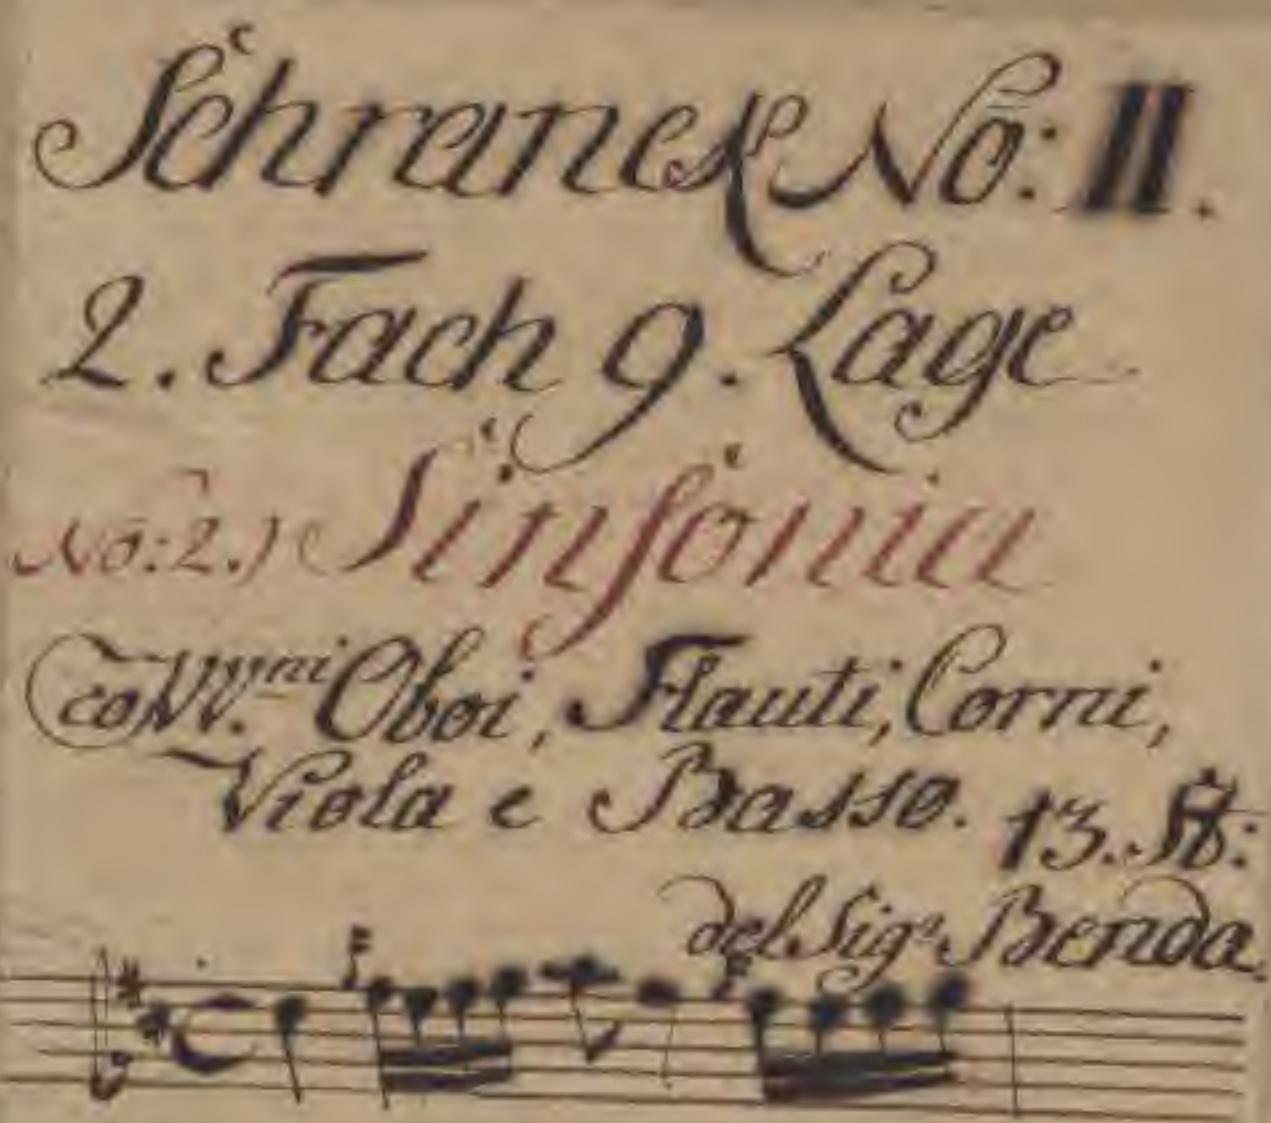 Schranck No: II.
2. Fach 9. Lage
No: 2.) Sinfonia
co VV.ni Oboi, Flauti, Corni,
Viola e Basso. 13. St:
del Sigr Benda.